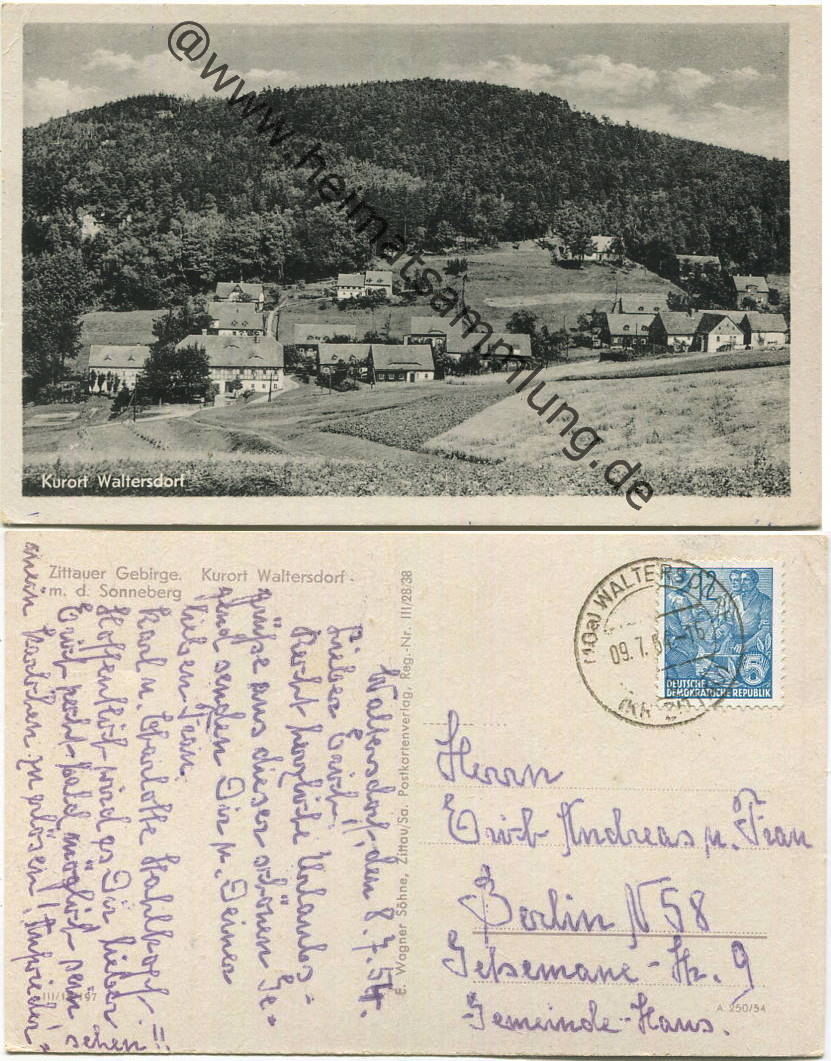 @www.heimatsammlung.de
Kurort Waltersdorf
Zittauer Gebirge. Kurort Waltersdorf
m. d. Sonneberg
Waltersdorf, den 8.7.54.
Lieber Erich!
Recht herzliche Urlaubs=
grüße aus dieser schönen Ge=
gend senden Dir u. Deiner
lieben Frau.
Karl u. Charlotte Kahlkopf!!
Hoffentlich wird es Dir lieber
Erich recht bald möglich sein
mein Karlchen zu
sehen!
III/1 197
E. Wagner Söhne, Zittau/Sa. Postkartenverlag, Reg.-Nr. III/28/38
(10a) WALTERSD
09.7.54-15
(KR ZI
DEUTSCHE
DEMOKRATISCHE REPUBLIK
5
Herrn
Erich Andreas u. Frau
Berlin N 58
Getsemane-Str. 9
Gemeinde-Haus.
A 250/54